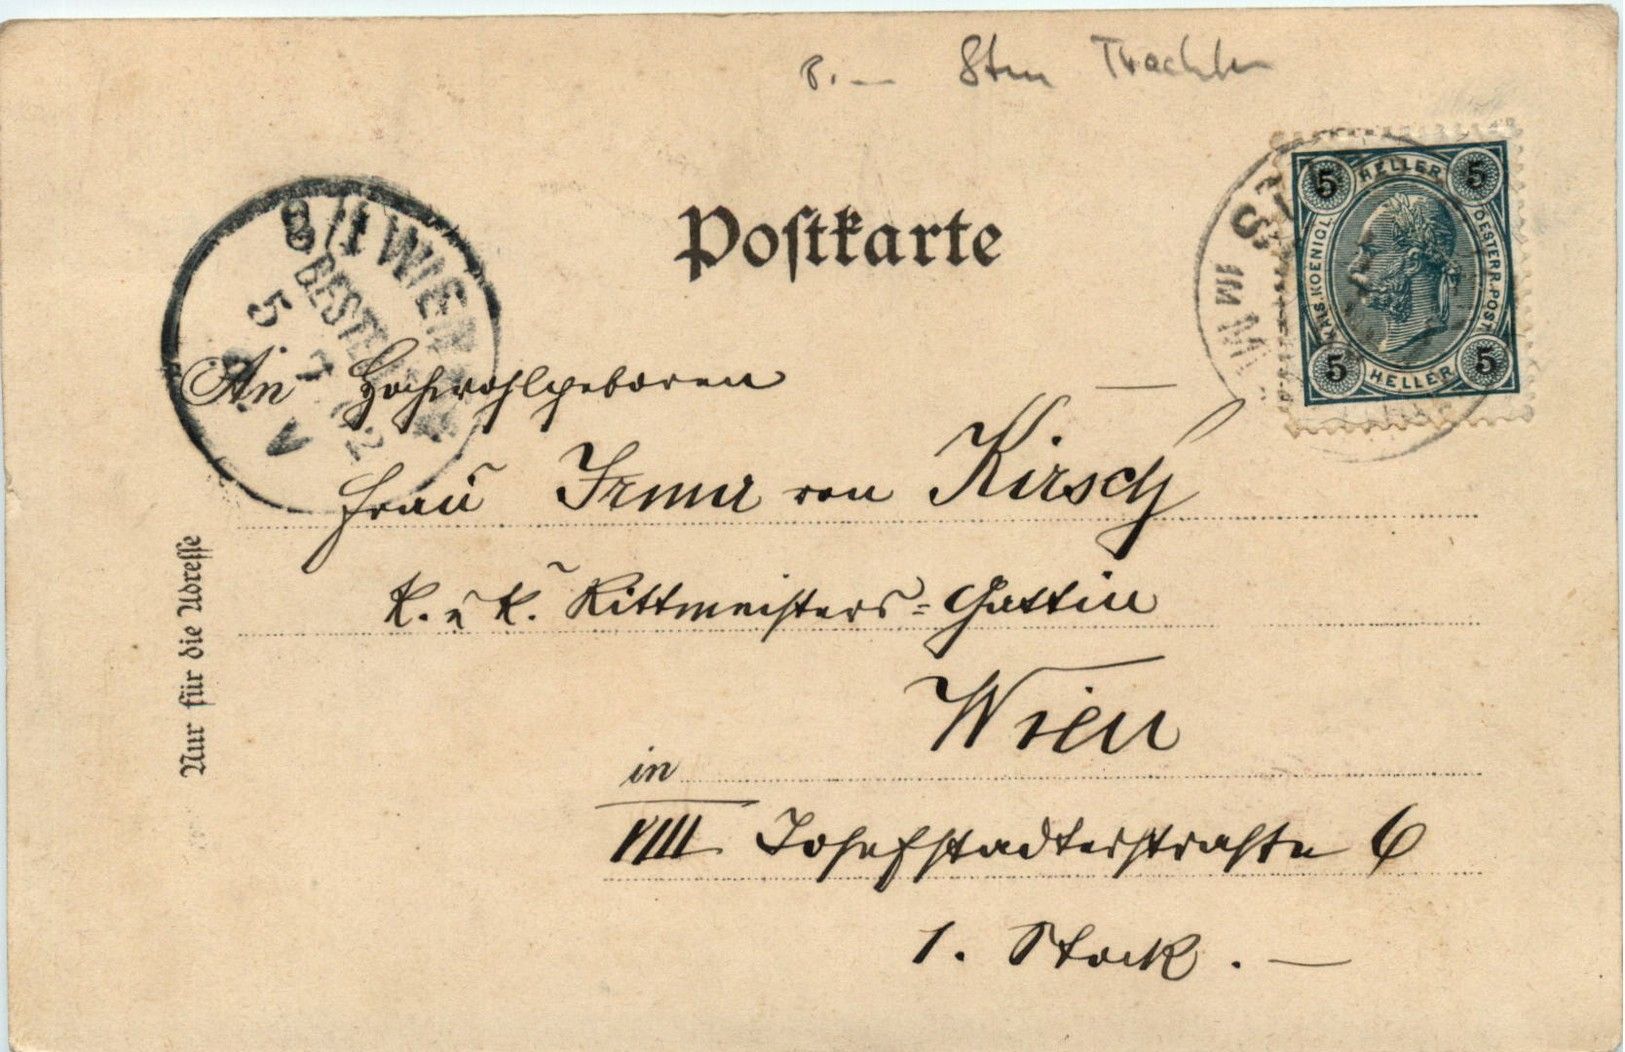 8.–
Postkarte
8/1 WIEN
BESTELLT
5
7
V
5 HELLER 5
KAIS. KOENIGL. OESTERR. POST.
5 HELLER 5
An Hochwohlgeboren
Frau Irma von Kirsch
K. u. K. Rittmeisters-Gattin
Wien
in
VIII Josefstadterstraße 6
1. Stock. –
Nur für die Adresse